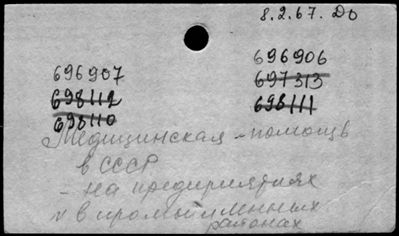 8.2.67. До
696907
698112
698110
696906
697313
698111
Медицинская помощь
в СССР
- на предприятиях
и в промышленных
районах